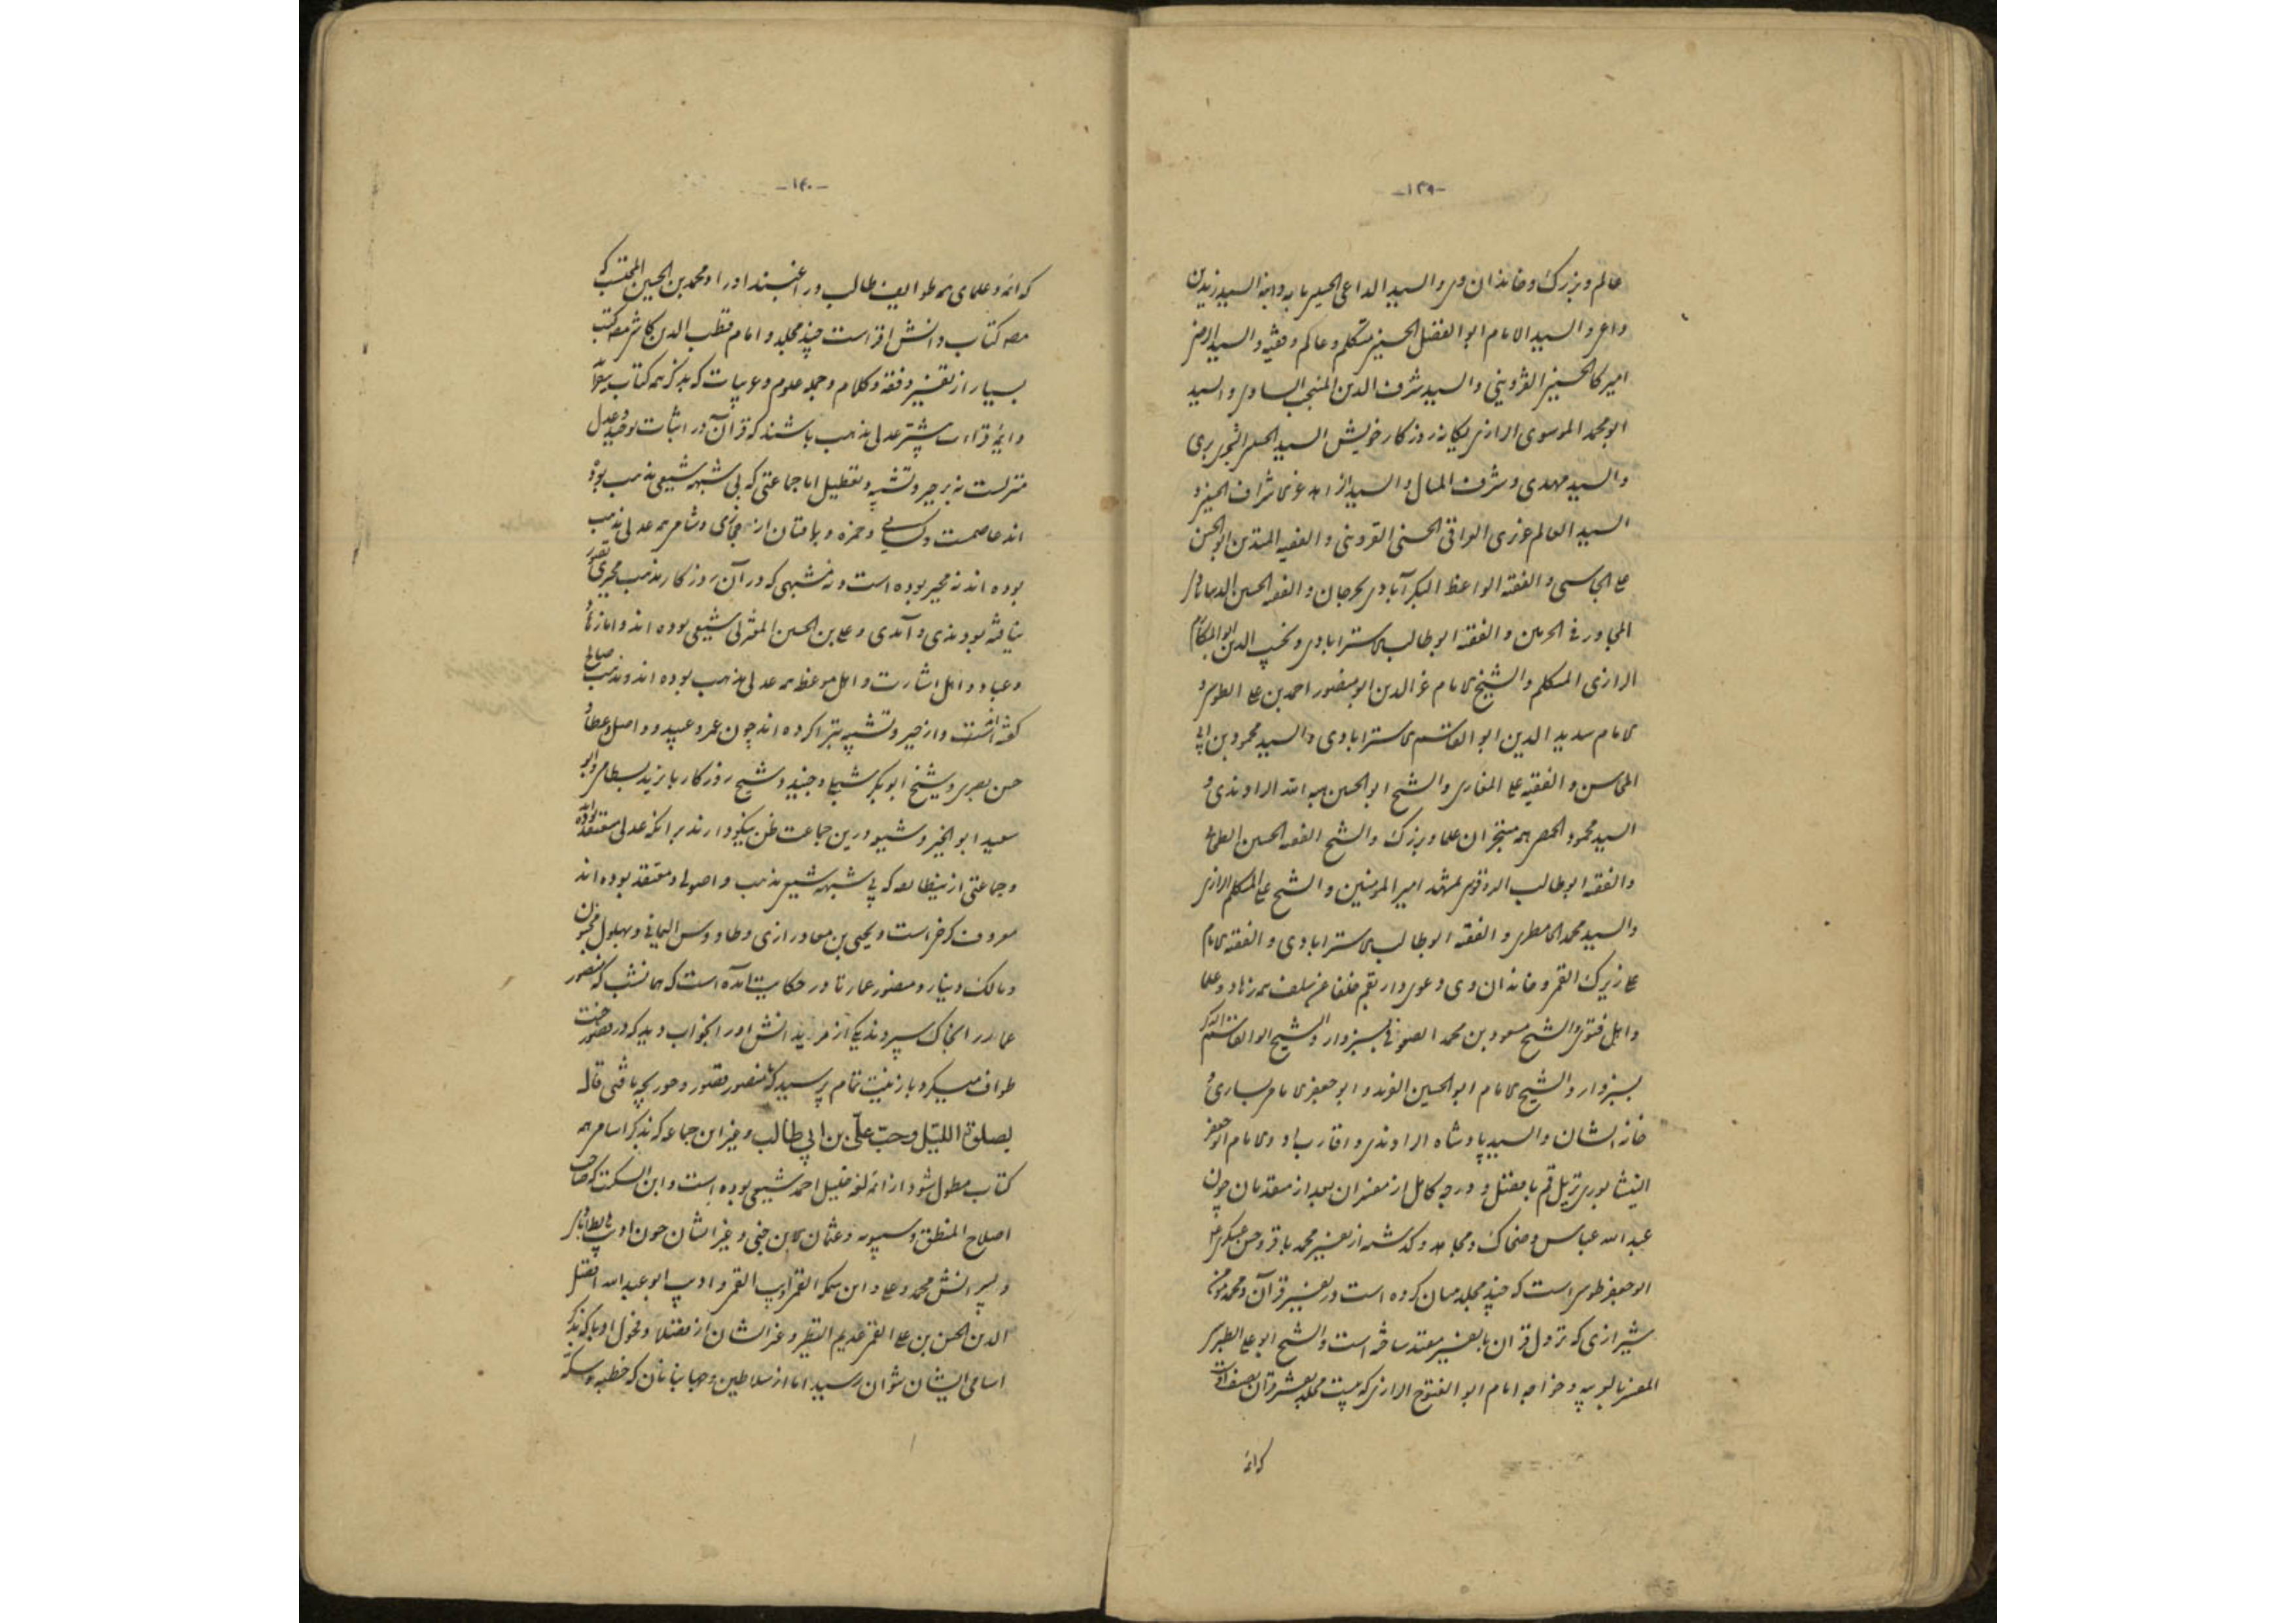 -۱۳۹-
عالم و بزرگ و خاندان وی و السید الداعی الحسینی بابه و ابنه السید زید بن
داعی و السید الامام ابو الفضل الحسینی متکلم و عالم و فقیه و السید الرضی
امیرکا الحسینی القزوینی و السید شرف الدین المنجب الساوی و السید
ابو محمد الموسوی الرازی یگانه روزگار خویش السید الجلیل
و السید مهدی و شرف و السید الحسینی و
السید العالم عزیزی الواقی الحسنی القزوینی و الفقیه المتدین ابو الحسن
علی الجاسبی و الفقیه الواعظ البکرآبادی بجرجان و الفقیه الحسین
المجاور فی الحرمین و الفقیه ابو طالب الاسترابادی و نجیب الدین ابو المکارم
الرازی المتکلم و الشیخ الامام عز الدین ابو منصور احمد بن علی الطوسی و
الامام سدید الدین ابو القاسم الاسترابادی و السید محمود بن ابی
المحاسن و الفقیه علی و الشیخ ابو الحسین هبة الله الراوندی و
السید محمود الحمصی همه متبحران علما و بزرگ و الشیخ الفقیه الحسین
و الفقیه ابو طالب بمشهد امیر المومنین و الشیخ علی المتکلم الرازی
و السید محمد المامطری و الفقیه ابو طالب الاسترابادی و الفقیه الامام
علی زیرک القمی و خاندان وی دعوی دار بقم خلفا عن سلف همه زهاد و علما
و اهل فتوی و الشیخ مسعود بن محمد الصوفی بسبزوار و الشیخ ابو القاسم
بسبزوار و الشیخ الامام ابو الحسین و ابو جعفر امامی بساری و
خانه ایشان و السید پادشاه الراوندی و اقارب او و الامام ابو جعفر
النیشابوری نزیل قم با فضل و درجه کامل از مفسران بعد از متقدمان چون
عبد الله عباس و ضحاک و مجاهد و گذشته از تفسیر محمد باقر و حسن عسکری
ابو جعفر طوسی است که چند مجلد بیان کرده است در تفسیر قرآن و محمد مومن
شیرازی که نزول قرآن بتفسیر معتمد ساخته است و الشیخ ابو علی الطبرسی
المفسر و خواجه امام ابو الفتوح الرازی که بیست مجلد تفسیر قرآن تصنیف اوست
که ائمه
-۱۴۰-
که ائمه و علمای همه طوایف طالب و راغبند او را و محمد بن الحسین المحتسب که
مصنف کتاب دانش افزاست چند مجلد و امام قطب الدین کاشی مصنف کتب
بسیار از تفسیر و فقه و کلام و جمله علوم و عربیات که بذکر همه کتاب
و ائمه قراءت بیشتر عدلی مذهب باشند که قرآن در اثبات توحید و عدل
منزلست نه بر جبر و تشبیه و تعطیل اما جماعتی که بی شبهه شیعی مذهب بوده
اند عاصمست و کسایی و حمزه و باقیان از حجازی و شامی همه عدلی مذهب
بوده اند نه مجبر بوده است و نه مشبهی که در آن روزگار مذهب مجبری
نیافته بودندی و آمدی و علی بن الحسین المغربی شیعی بوده اند و اما زهاد
و عباد و اهل اشارت و اهل موعظه همه عدلی مذهب بوده اند و مذهب صالح
داشته و از جبر و تشبیه تبرا کرده اند چون عمرو عبید و واصل عطا و
حسن بصری و شیخ ابو بکر شبلی و جنید و شیخ روزگار بایزید بسطامی و ابو
سعید ابو الخیر و شیعه درین جماعت ظن نیکو دارند بر آنکه عدلی معتقد بوده اند
و جماعتی ازین طایفه که بی شبهه شیعی مذهب و اصولی و معتقد بوده اند
معروف کرخی است و یحیی بن معاذ رازی و طاووس الیمانی و بهلول مجنون
و مالک دینار و منصور عمار تا در حکایت آمده است که همانشب که منصور
عمار را بخاک سپردند یکی از مریدانش او را بخواب دید که در قصور جنت
طواف میکرد با زینت تمام پرسید که یا منصور قصور و حور بچه یافتی قال
بصلوة اللیل و حب علی بن ابی طالب و غیر این جماعه که بذکر اسامی همه
کتاب مطول شود از ائمه لغه خلیل احمد شیعی بوده است و ابن السکیت که صاحب
اصلاح المنطق و سیبویه و عثمان بن جنی و غیر ایشان چون ادیب
و پسرانش محمد و علی و ابن سمکه القمی و ادیب القمی و ادیب ابو عبد الله افضل
الدین الحسن بن علی القمی عدیم النظیر و غیر ایشان از فضلا و فحول ادبا که بذکر
اسامی ایشان نتوان رسید اما از سلاطین و جهانبانان که خطبه و سکه